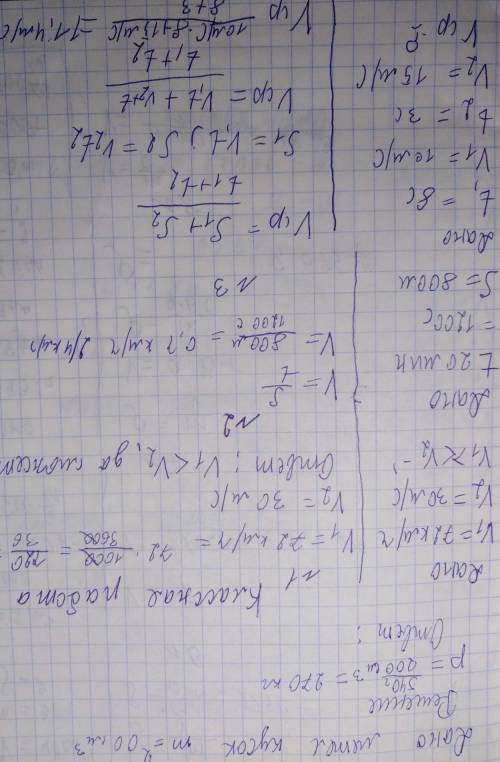 Дано метал кусок m = 200 см³
Решение
p = 540г / 200 см³ = 270 кг
Ответ:
Классная работа
№1
Дано
V₁ = 72 км/ч
V₂ = 30 м/с
V₁ > < V₂ -
V₁ = 72 км/ч = 72 · 1000 / 3600 = 720 / 36
V₂ = 30 м/с
Ответ: V₁ < V₂, да
№2
Дано
t 20 мин
= 1200с
S = 800м
V = S / t
V = 800м / 1200с = 0,7 км/ч 2,4 км/ч
№3
Дано
t₁ = 8с
V₁ = 10 м/с
t₂ = 3с
V₂ = 15 м/с
Vср - ?
Vср = S₁ + S₂ / t₁ + t₂
S₁ = V₁t₁ S₂ = V₂t₂
Vср = V₁t₁ + V₂t₂ / t₁ + t₂
Vср 10 м/с · 8 + 15 м/с / 8 + 3 = 11,4 м/с